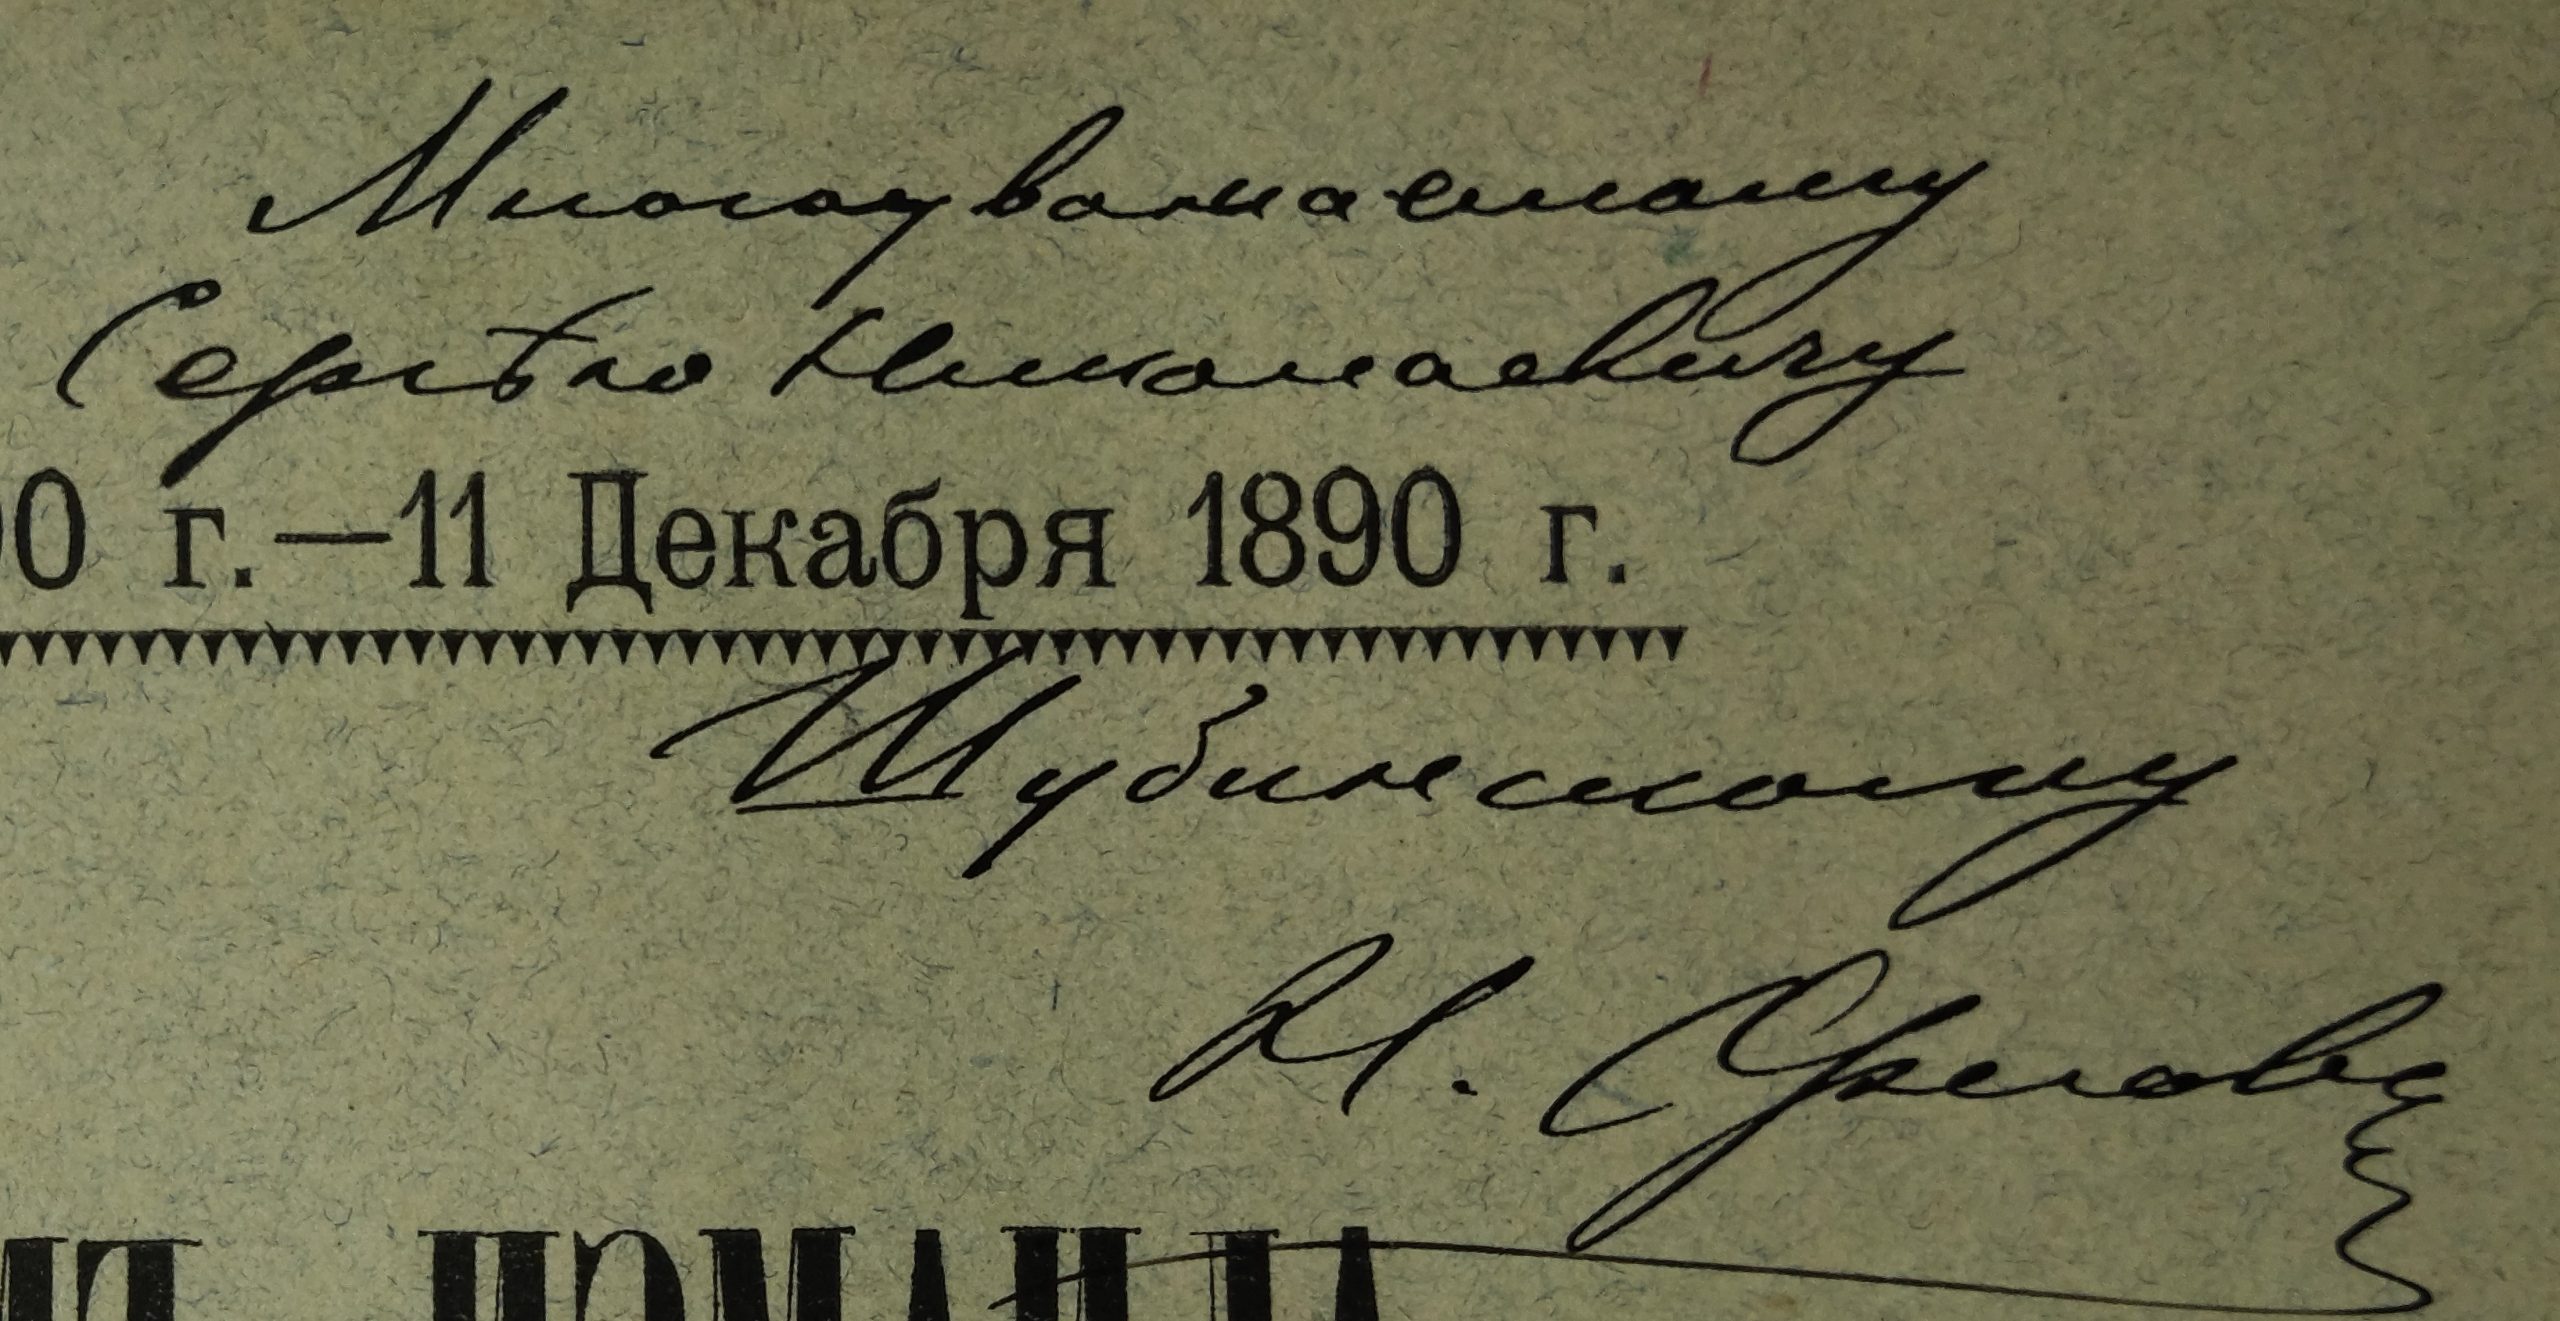 Многоуважаемому
Сергѣю Николаевичу
0 г.—11 Декабря 1890 г.
Шубинскому